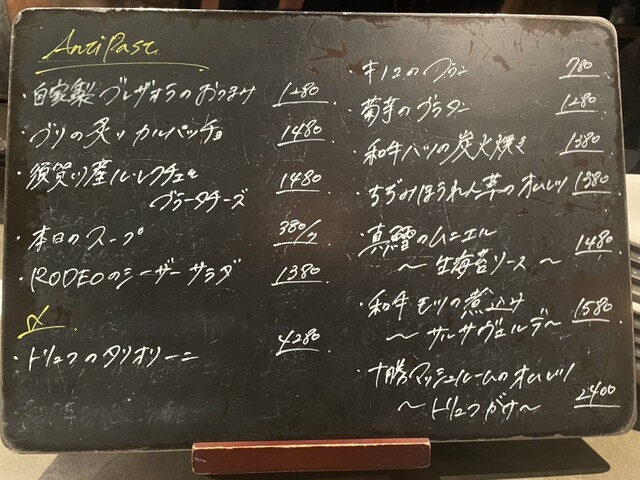 AntiPasti
・自家製ブレザオラのおつまみ 1280
・ブリの炙りカルパッチョ 1480
・須賀川産ル・レクチェと
ブラータチーズ 1480
・本日のスープ 380/
・RODEOのシーザーサラダ 1380
・トリュフのタリオリーニ 4280
・キノコのフラン 780
・菊芋のグラタン 1280
・和牛ハツの炭火焼き 1380
・ちぢみほうれん草のオムレツ 1380
・真鱈のムニエル
〜生海苔ソース〜 1480
・和牛モツの煮込み
〜サルサヴェルデ〜 1580
・十勝マッシュルームのオムレツ
〜トリュフがけ〜 2400